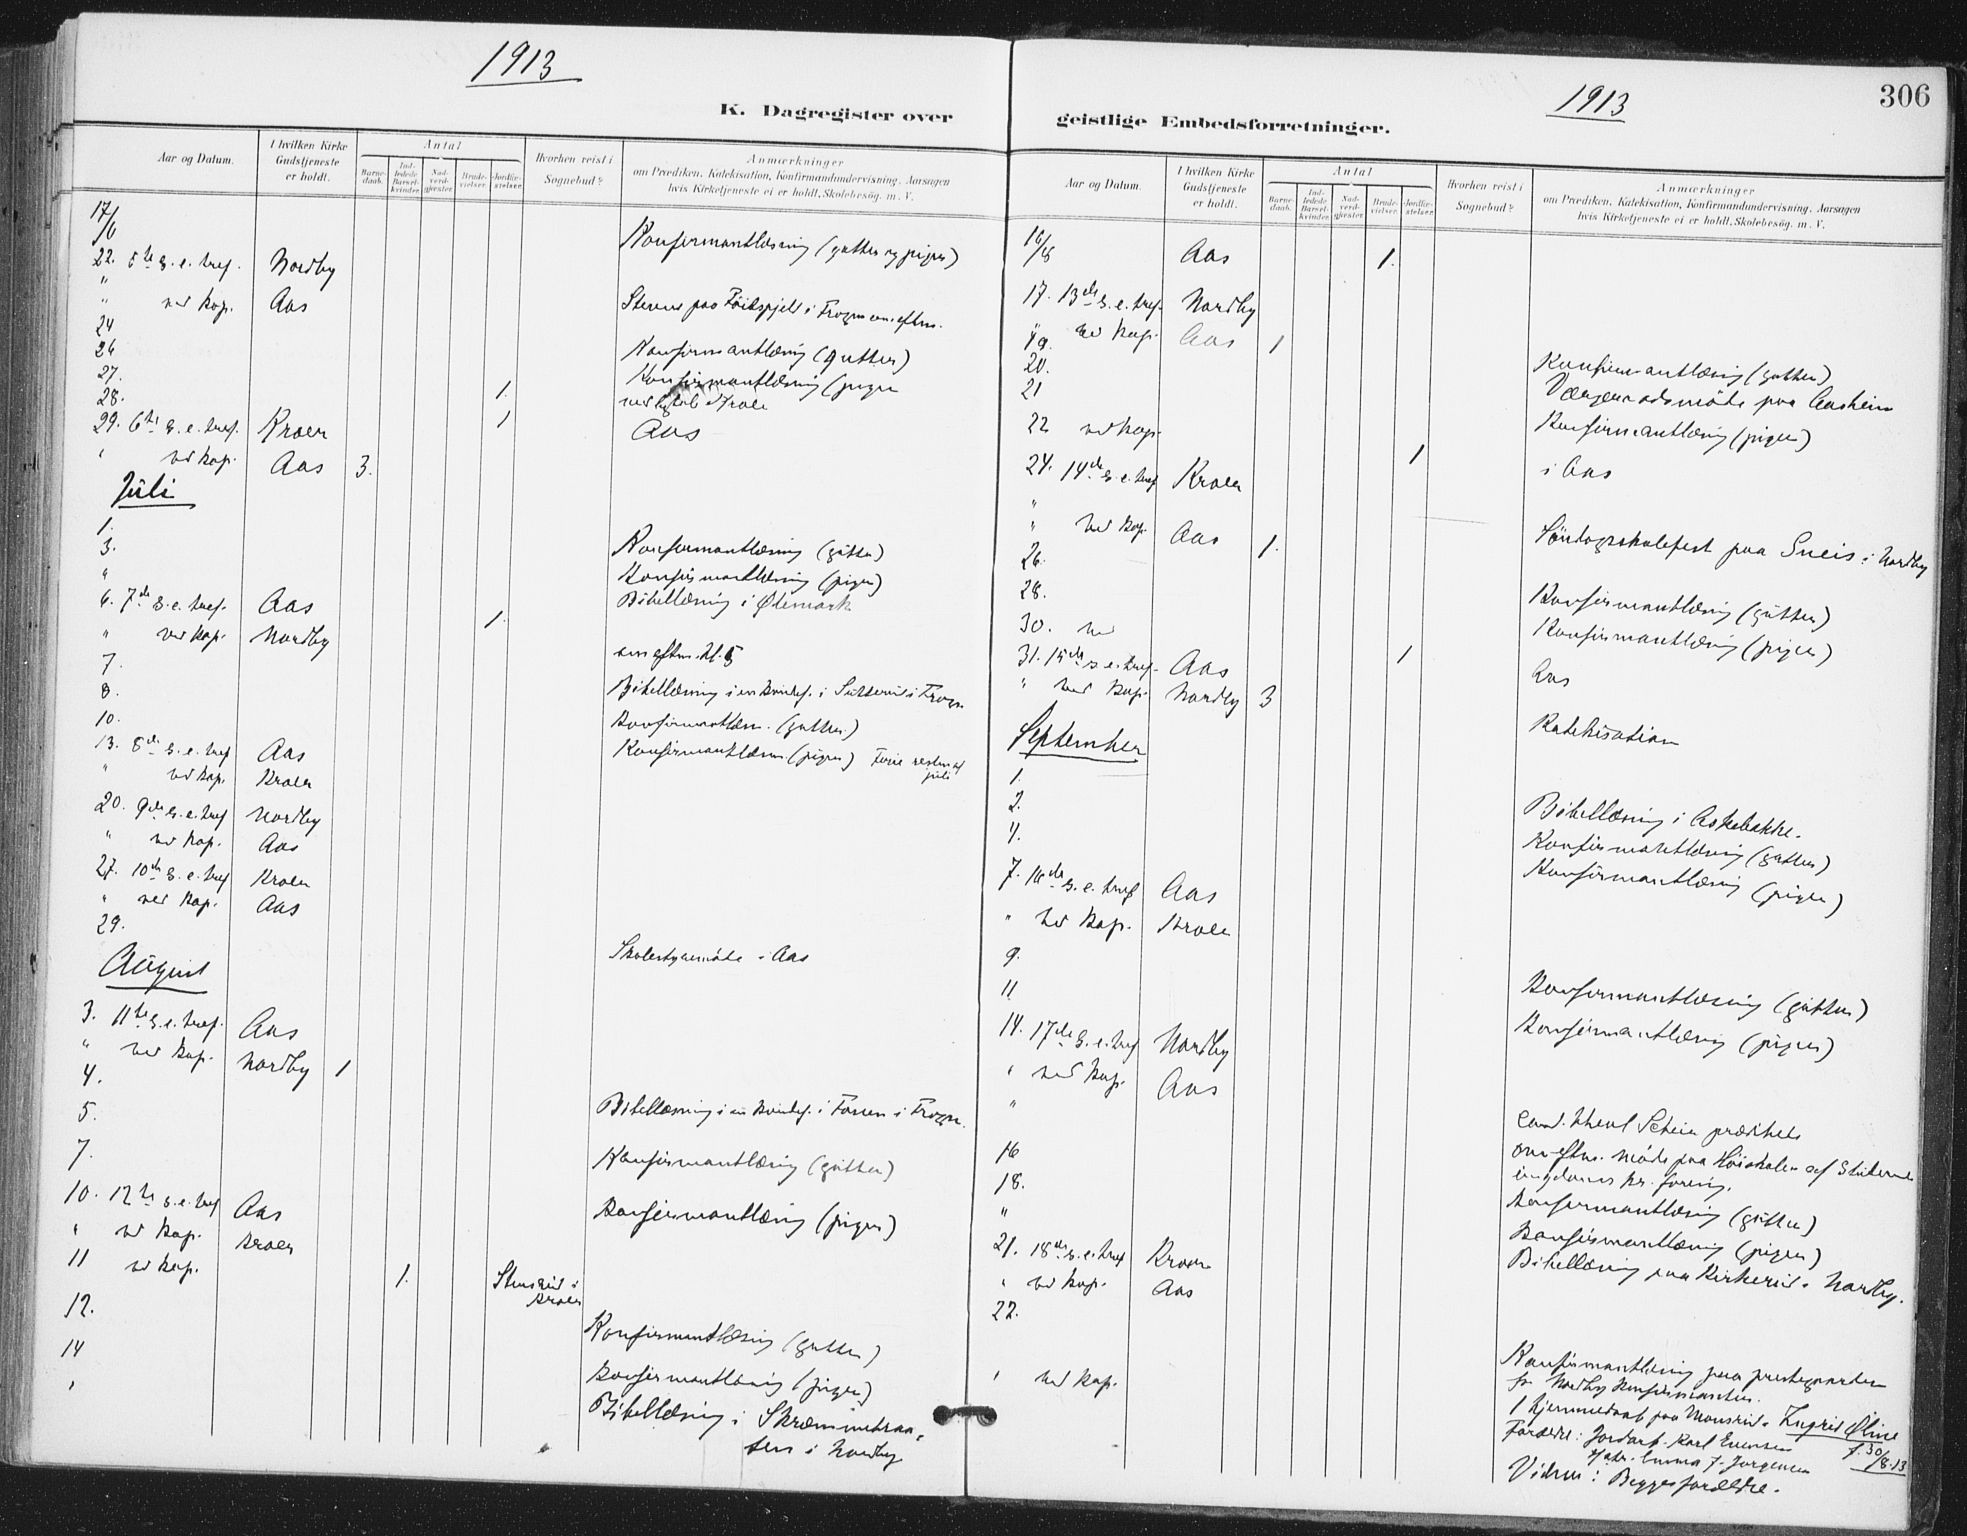 1913
K. Dagregister over
Aar og Datum.
I hvilken Kirke Gudstjeneste er holdt.
Antal
Barne-daab.
Ind-ledede Barsel-kvinder.
Nad-verd-gjester.
Brude-vielser.
Jordfæ-stelser.
Hvorhen reist i Sognebud?
Anmærkninger
om Prædiken, Katekisation, Konfirmandundervisning, Aarsagen
hvis Kirketjeneste ei er holdt, Skolebesög. m. V.
17/6 Konfirmantlæsning (gutter og piger)
22. 5te S. e. tref. Nordby
" ved kap. Aas Stevne paa i Frogn om eftm.
24 Konfirmantlæsning (gutter)
26 Konfirmantlæsning (piger
27. 1.
28. 1 Aas
29. 6te S. e. tref. Kroer
" ved kap. Aas 3.
Juli
1. Konfirmantlæsning (gutter)
3. Konfirmantlæsning (piger)
" Bibellæsning i Ølemark
6. 7de S. e. tref. Aas 1.
" ved kap. Nordby om eftm. kl. 5
7. Bibellæsning i en kvindef. i i Frogn
8. Konfirmantlæsn. (gutter)
10. Konfirmantlæsn. (piger) Ferie resten af juli
13. 8de S. e. tref Aas
" ved kap. Kroer
20. 9de S. e. tref Nordby
" ved kap. Aas
27. 10de S. e. tref Kroer
" ved kap. Aas
29. Skolestyremöde i Aas
August
3. 11te S. e. tref. Aas
" ved kap. Nordby 1
4. Bibellæsning i en kvindef. i i Frogn.
5. Konfirmantlæsning (gutter)
7. Konfirmantlæsning (piger)
10. 12te S. e. tref Aas
" ved kap. Kroer
11 ved kap. 1. Stensrud i Kroer
12. Konfirmantlæsning (gutter)
14 Konfirmantlæsning (piger)
" Bibellæsning i
i Nordby
1913
306
geistlige Embedsforretninger.
Aar og Datum.
I hvilken Kirke Gudstjeneste er holdt.
Antal
Barne-daab.
Ind-ledede Barsel-kvinder.
Nad-verd-gjester.
Brude-vielser.
Jordfæ-stelser.
Hvorhen reist i Sognebud?
Anmærkninger
om Prædiken, Katekisation, Konfirmandundervisning, Aarsagen
hvis Kirketjeneste ei er holdt, Skolebesög. m. V.
16/8 Aas 1.
17. 13de S. e. tref. Nordby
" ved kap. Aas 1
19. Konfirmantlæsning (gutter)
20. Værgeraadsmöde paa Aasheim
21 Konfirmantlæsning (piger)
22 ved kap. 1 i Aas
24. 14de S. e. tref Kroer
" Söndagsskolefest paa Sneis i Nordby
" ved kap. Aas 1.
26. Konfirmantlæsning (gutter)
28. Konfirmantlæsning (piger)
30. ved 1 Aas
31. 15de S. e. tref. Aas Katekisation
" ved kap. Nordby 3
September
1. Bibellæsning i Askebakke.
2. Konfirmantlæsning (gutter)
4. Konfirmantlæsning (piger)
7. 16de S. e. tref Aas
" ved kap. Kroer
9. Konfirmantlæsning (gutter)
11 Konfirmantlæsning (piger)
14. 17de S. e. tref Nordby
" ved kap. Aas cand. theol prædiket
" om eftm. möde paa Höiskolen af
ungdoms kr. forening.
16 Konfirmantlæsning (gutter)
18. Konfirmantlæsning (piger)
" Bibellæsning paa Kirkerud i Nordby.
21. 18de S. e. tref Kroer
" ved kap. Aas
22. Konfirmantlæsning paa prestegaarden
for Nordby konfirmanter.
" ved kap. 1 hjemmedaab paa Monsrud. Ingrid Öline
f. 30/8.13
Forældre: Karl Evensen
Emma f. Jörgensen
Vidne: Begge forældre.